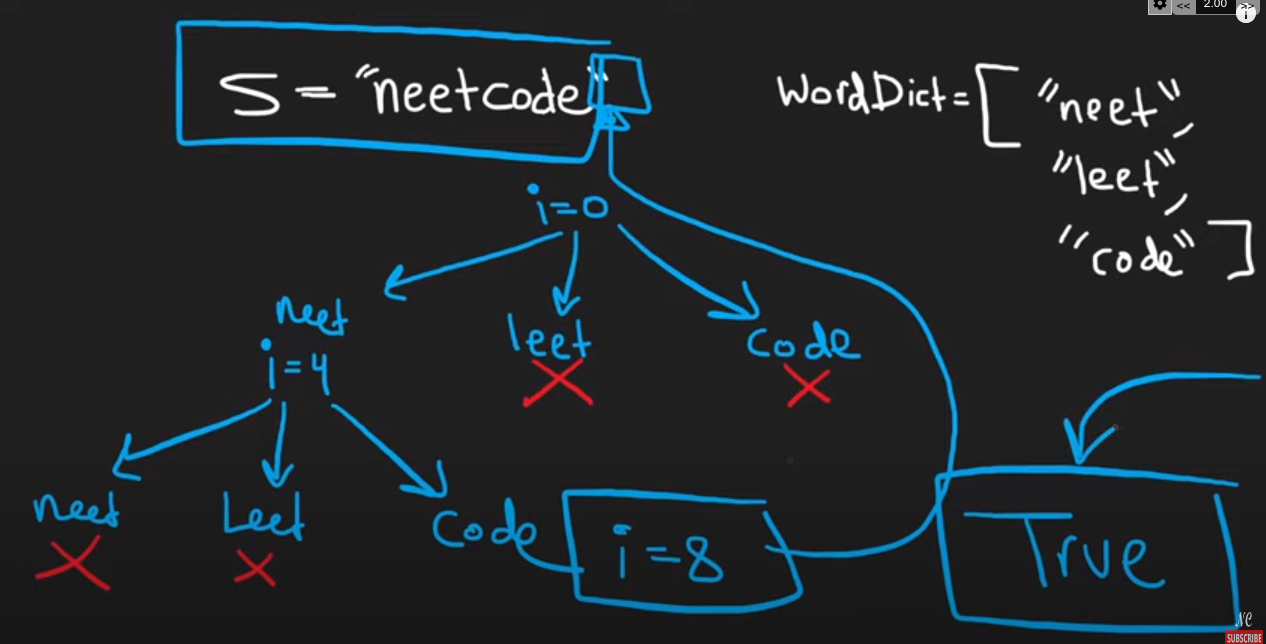 << 2.00 >>
S = "neetcode"
WordDict = [ "neet",
"leet",
"code" ]
i=0
neet
leet
code
i=4
neet
Leet
Code
i=8
True
NC
SUBSCRIBE